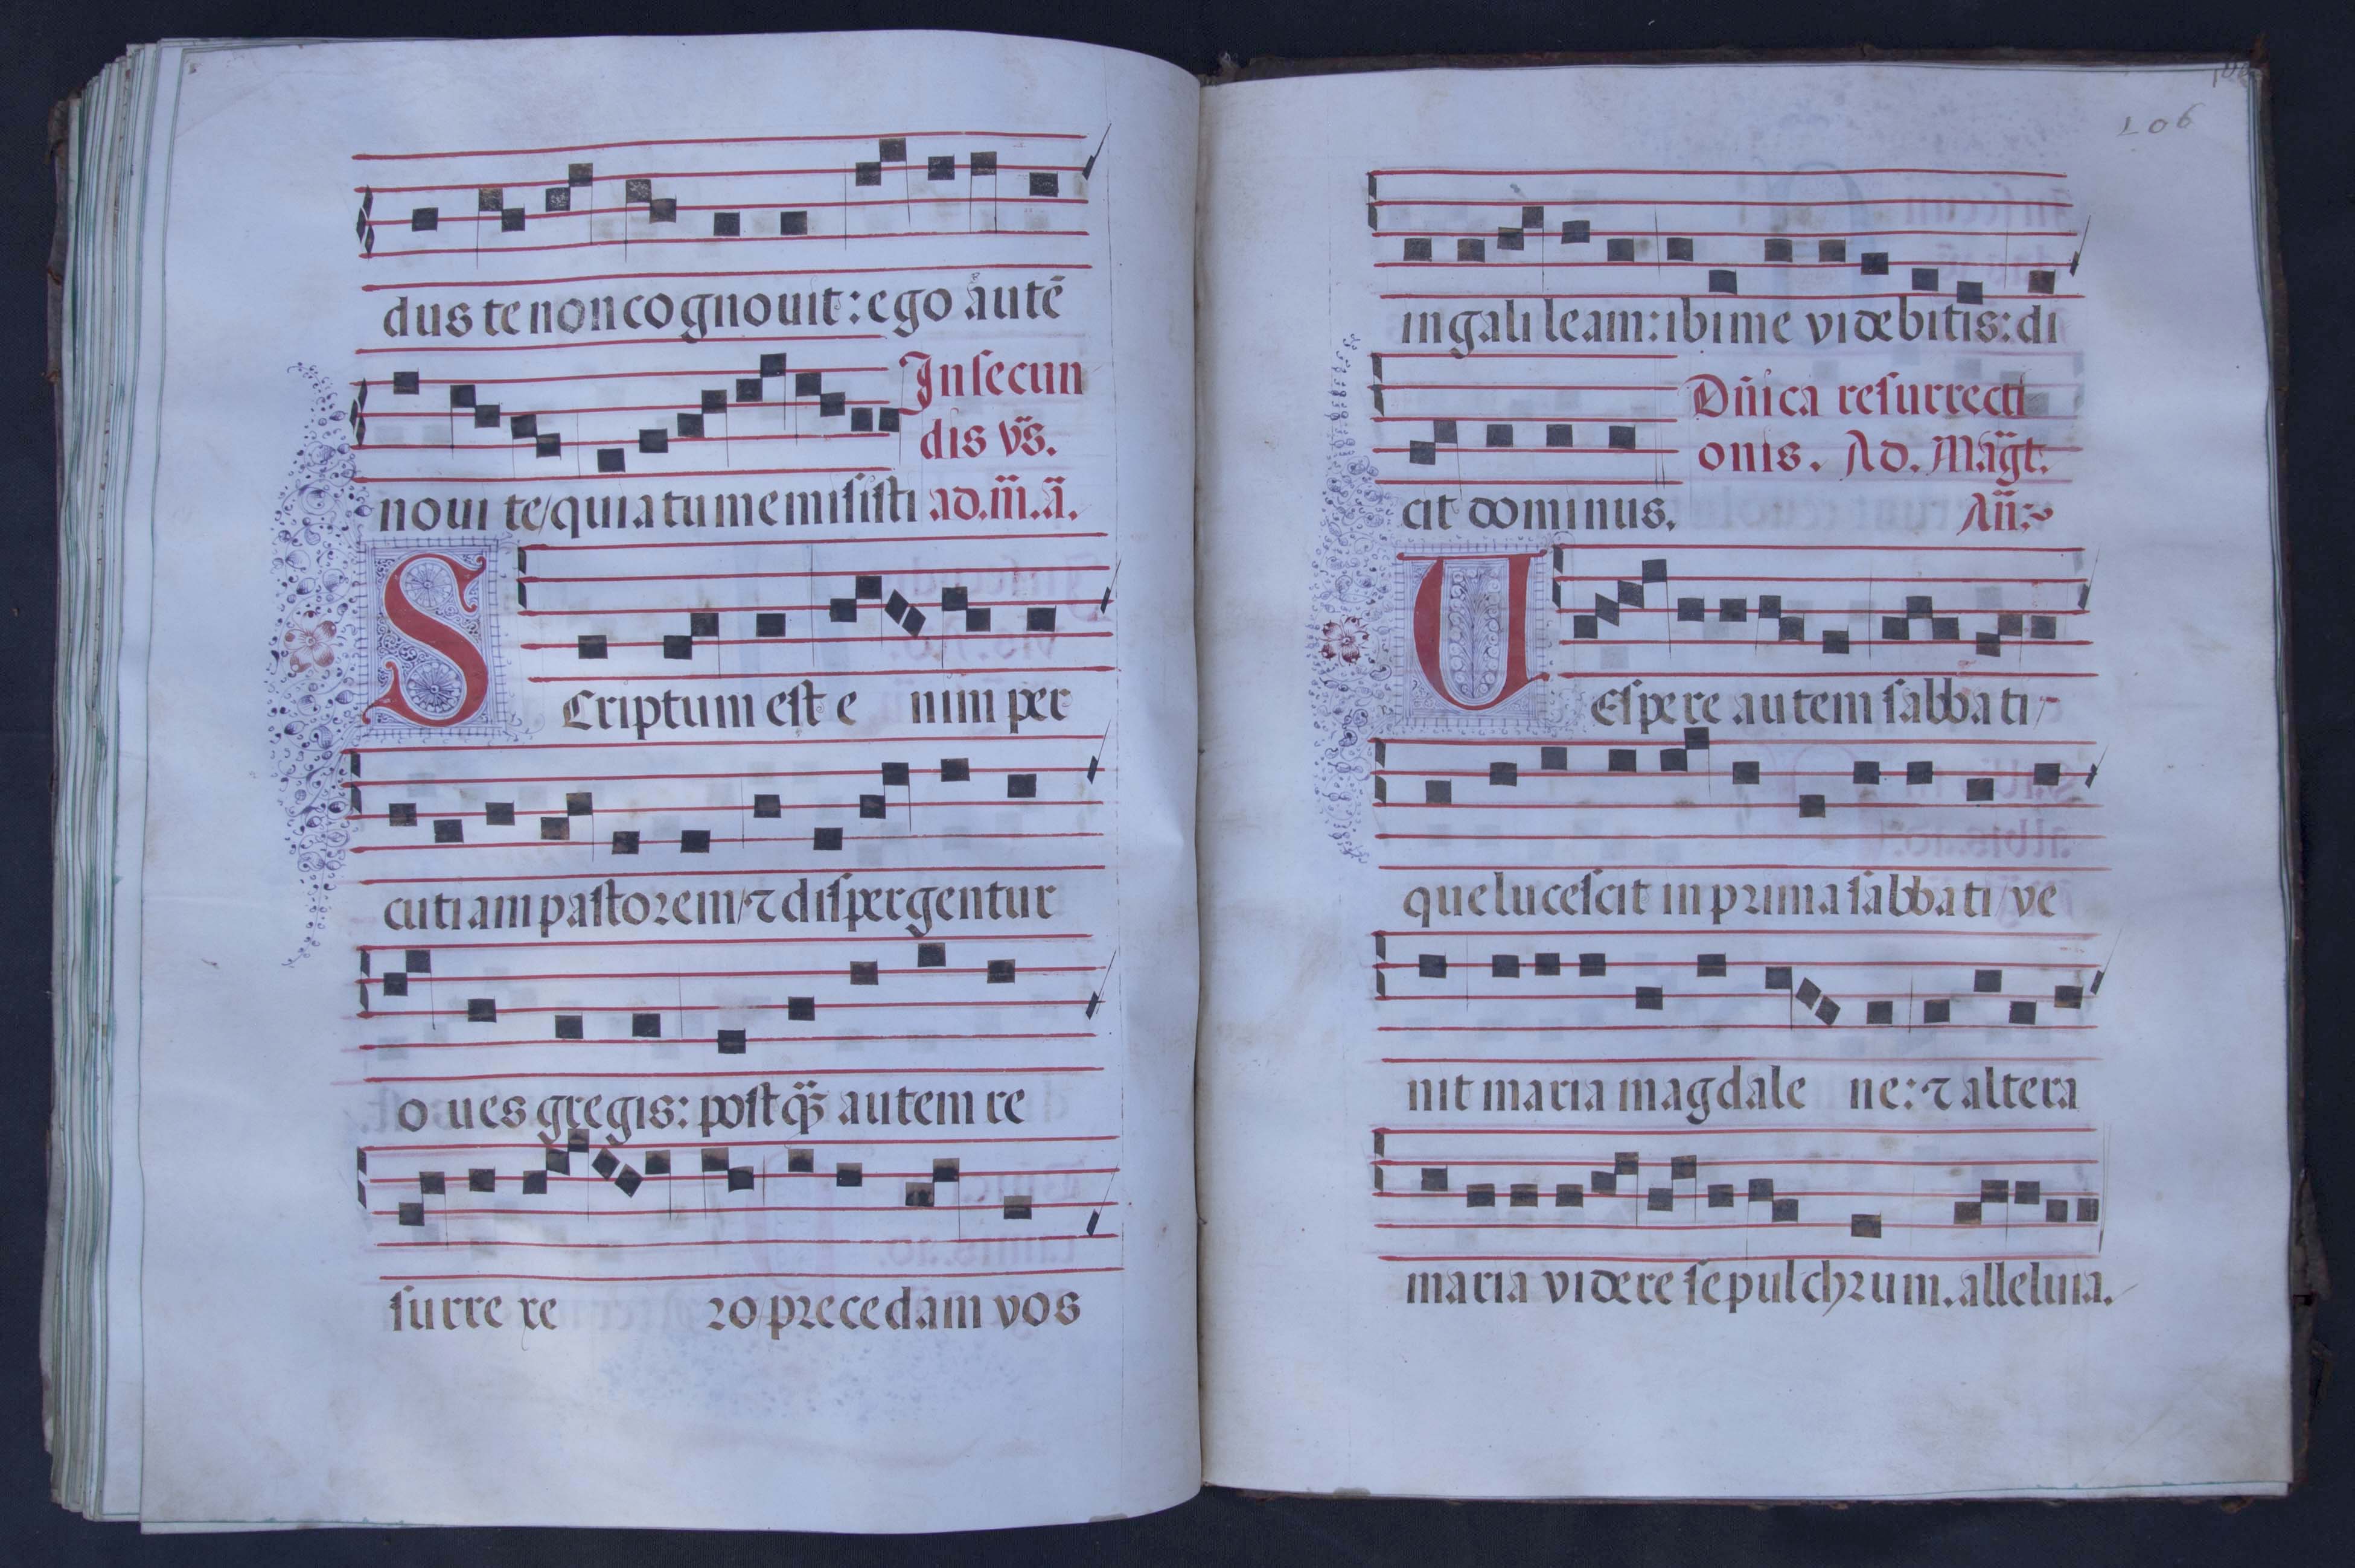 dus te non cognouit: ego autē
In secun
dis vs̄.
noui te/ quia tu me misisti ad. m̄. ā.
SCriptum est e nim per
cutiam pastorem/ ⁊ dispergentur
oues gregis: postq̄ȝ autem re
surre xe ro precedam vos
106
in galileam: ibi me videbitis: di
Dn̄ica resurrecti
onis. Ad. Maḡt.
cit dominus. An̄:
UEspere autem sabbati
que lucescit in prima sabbati/ ve
nit maria magdale ne: ⁊ altera
maria videre sepulchrum. alleluia.